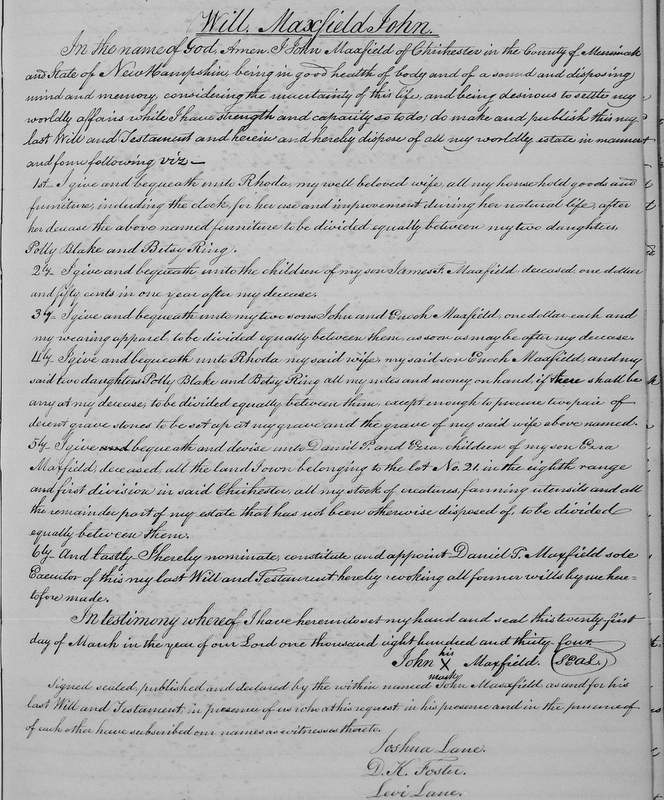 Will. Maxfield John.
In the name of God, Amen. I John Maxfield of Chichester in the County of Merrimack
and State of New Hampshire, being in good health of body and of a sound and disposing
mind and memory, considering the uncertainty of this life, and being desirous to settle my
worldly affairs while I have strength and capacity so to do; do make and publish this my
last Will and Testament and herein and hereby dispose of all my worldly estate in manner
and form following, viz—
1st. I give and bequeath unto Rhoda, my well beloved wife, all my house hold goods and
furniture, including the clock, for her use and improvement during her natural life, after
her decease the above named furniture to be divided equally between my two daughters,
Polly Blake and Betsy Ring.
2ly. I give and bequeath unto the children of my son James F. Maxfield deceased one dollar
and fifty cents in one year after my decease.
3ly. I give and bequeath unto my two sons John and Enoch Maxfield, one dollar each and
my wearing apparel, to be divided equally between them, as soon as may be after my decease.
4ly. I give and bequeath unto Rhoda my said wife, my said son Enoch Maxfield, and my
said two daughters Polly Blake and Betsy Ring all my notes and money on hand, if there shall be
any at my decease, to be divided equally between them, except enough to procure two pair of
decent grave stones to be set up at my grave and the grave of my said wife above named.
5ly. I give and bequeath and devise unto Daniel P. and Ezra, children of my son Ezra
Maxfield, deceased all the land I own belonging to the lot No. 21 in the eighth range
and first division in said Chichester, all my stock of creatures, farming utensils and all
the remainder part of my estate that has not been otherwise disposed of, to be divided
equally between them.
6ly. And Lastly I hereby nominate, constitute and appoint Daniel P. Maxfield sole
Executor of this my last Will and Testament hereby revoking all former wills by me here-
tofore made.
In testimony whereof I have hereunto set my hand and seal this twenty first
day of March in the year of our Lord one thousand eight hundred and thirty four.
John his X mark Maxfield. (SEAL.)
Signed sealed, published and declared by the within named John Maxfield, as and for his
last Will and Testament, in presence of us who at his request in his presence and in the presence of
of each other have subscribed our names as witnesses thereto.
Joshua Lane.
D. K. Foster.
Levi Lane.